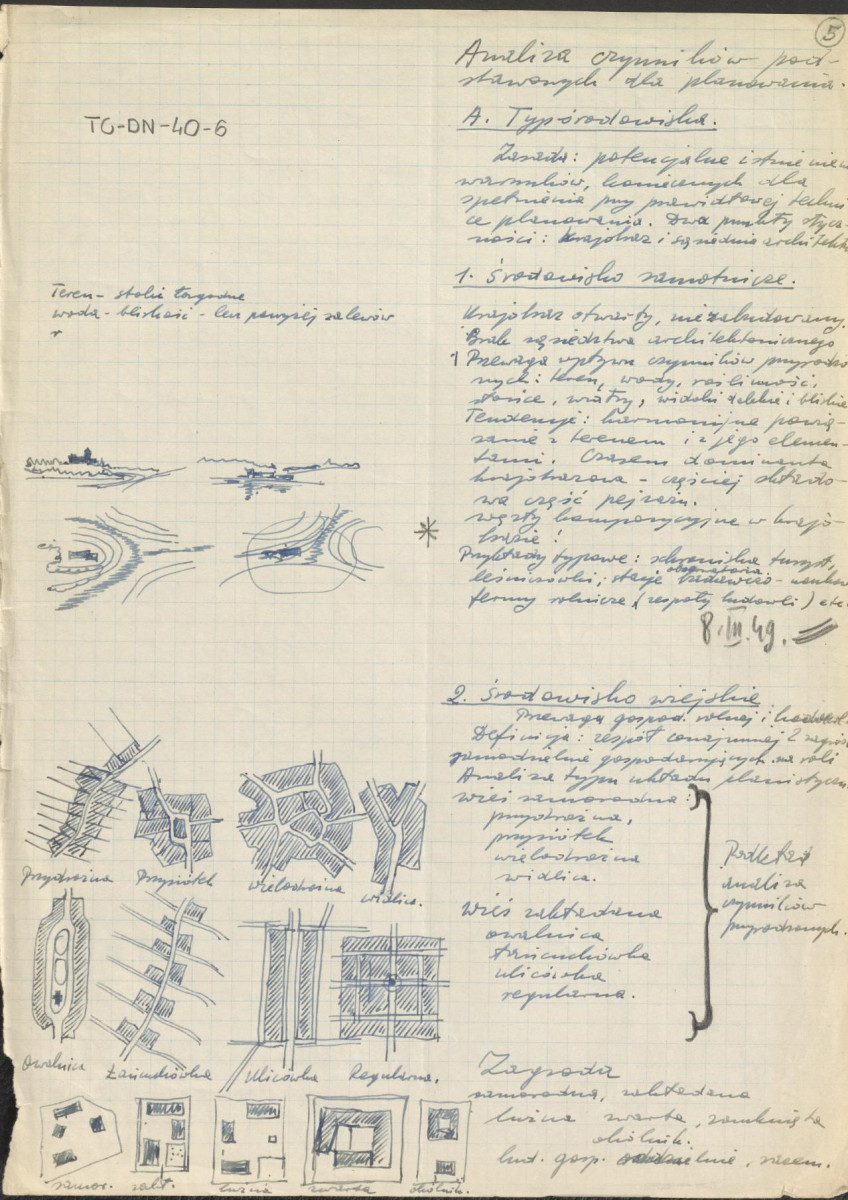 5
TG-DN-40-6
Analiza czynników pod-
stawowych dla planowania.
A. Typ środowiska.
Zasada: potencjalne istnienie
warunków, koniecznych dla
spełnienia przy prawidłowej techni
ce planowania. Dwa punkty stycz-
ności: krajobraz i sąsiednia architekt
1. Środowisko samotnicze.
Krajobraz otwarty, niezabudowany.
Brak sąsiedztwa architektonicznego
1 Przewaga wpływu czynników przyrodzo
nych: teren, wody, roślinność,
słońce, wiatry, widoki dalekie i bliskie
Tendencje: harmonijne powią-
zanie z terenem i z jego elemen-
tami. Czasem dominanta
krajobrazowa - częściej składo-
wa część pejzażu.
węzły kompozycyjne w krajo-
brazie!
Przykłady typowe: schroniska turyst,
obserwatoria
leśniczówki; stacje badawczo-naukow
fermy rolnicze (zespoły budowli) etc.
8.III.49.
Teren - stoki łagodne
woda - bliskość - lecz powyżej zalewów
r
2. Środowisko wiejskie
Przewaga gospod. rolnej i
Definicja: zespół conajmniej 2 zagród
samodzielnie gospodarujących na roli
Analiza typu układu planistyczn
wieś samorodna:
przydrożna,
przysiółek
wielodrożna
widlica.
wieś zakładana
owalnica
łańcuchówka
ulicówka
regularna.
Podkład
analiza
czynników
przyrodzonych.
Przydrożna
Przysiółek
wielodrożna
widlica.
Owalnica
Łańcuchówka
Ulicówka
Regularna.
Zagroda
samorodna, zakładana
luźna zwarta, zamknięta
okólnik.
bud. gosp. , razem.
samor.
zakł.
luźna
zwarta
okólnik.